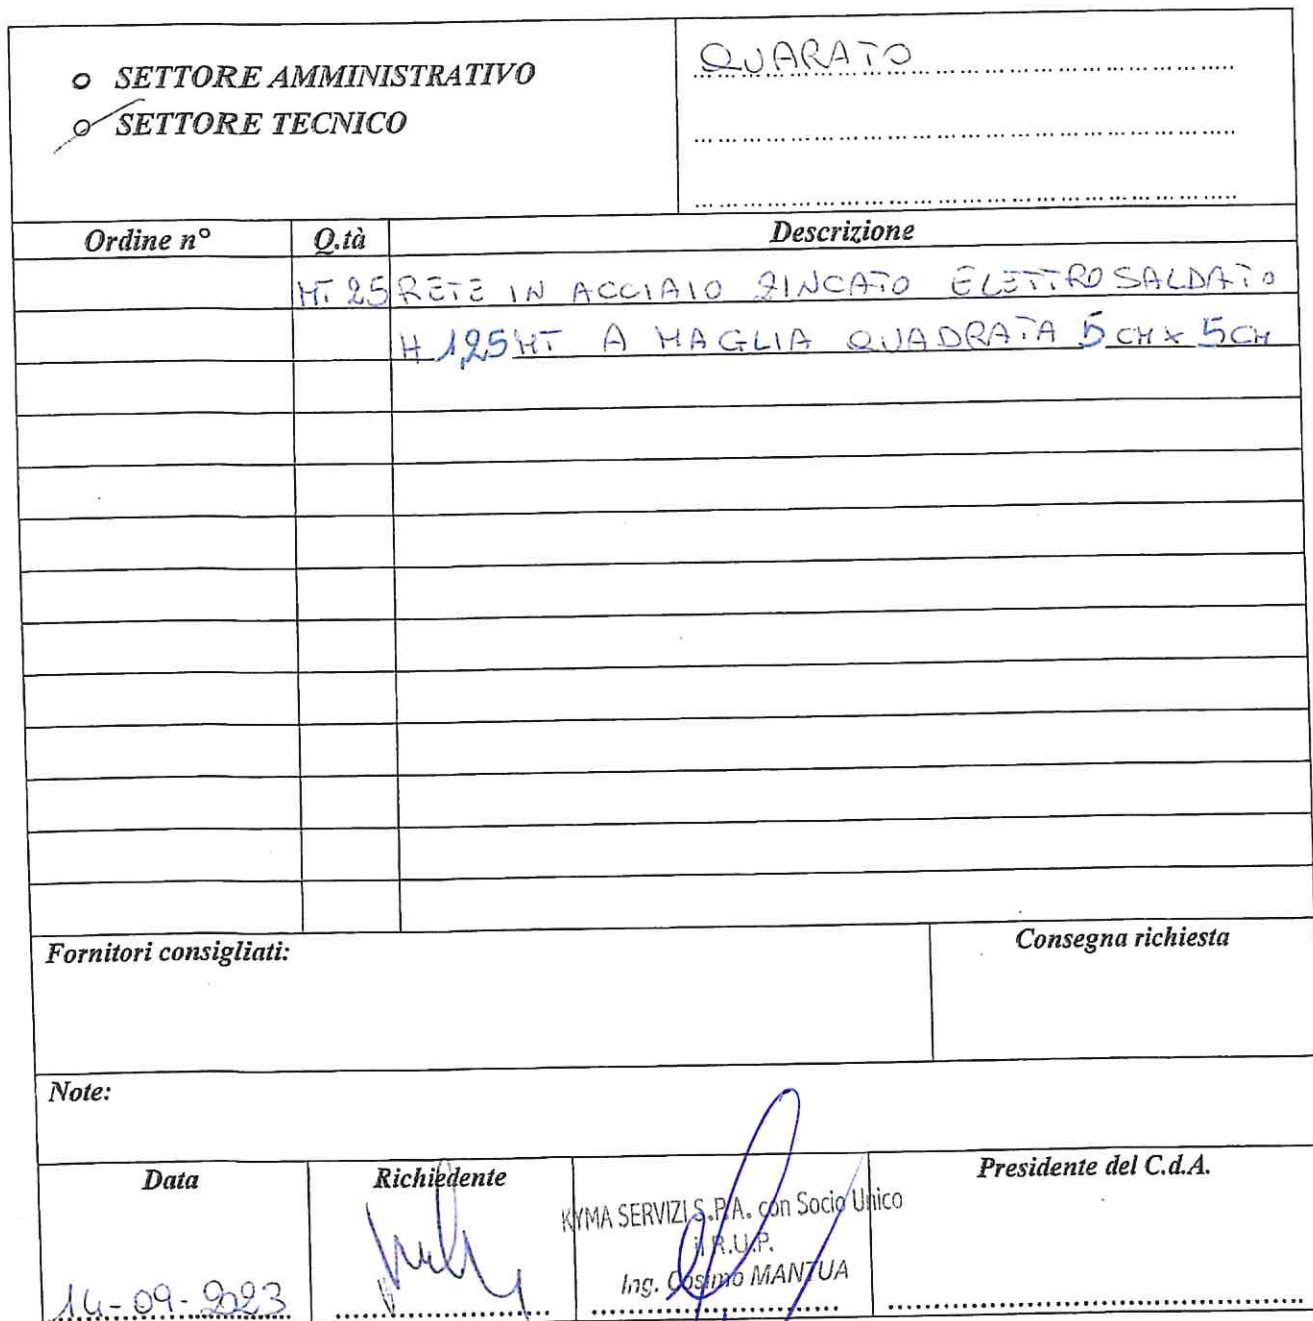 o SETTORE AMMINISTRATIVO
o SETTORE TECNICO
QUARATO
Ordine n° Q.tà Descrizione
MT 25 RETE IN ACCIAIO ZINCATO ELETTROSALDATO
H 1,25 MT A MAGLIA QUADRATA 5 CM x 5 CM
Fornitori consigliati: Consegna richiesta
Note:
Data Richiedente Presidente del C.d.A.
KYMA SERVIZI S.P.A. con Socio Unico
il R.U.P.
Ing. Cosimo MANTUA
14-09-2023